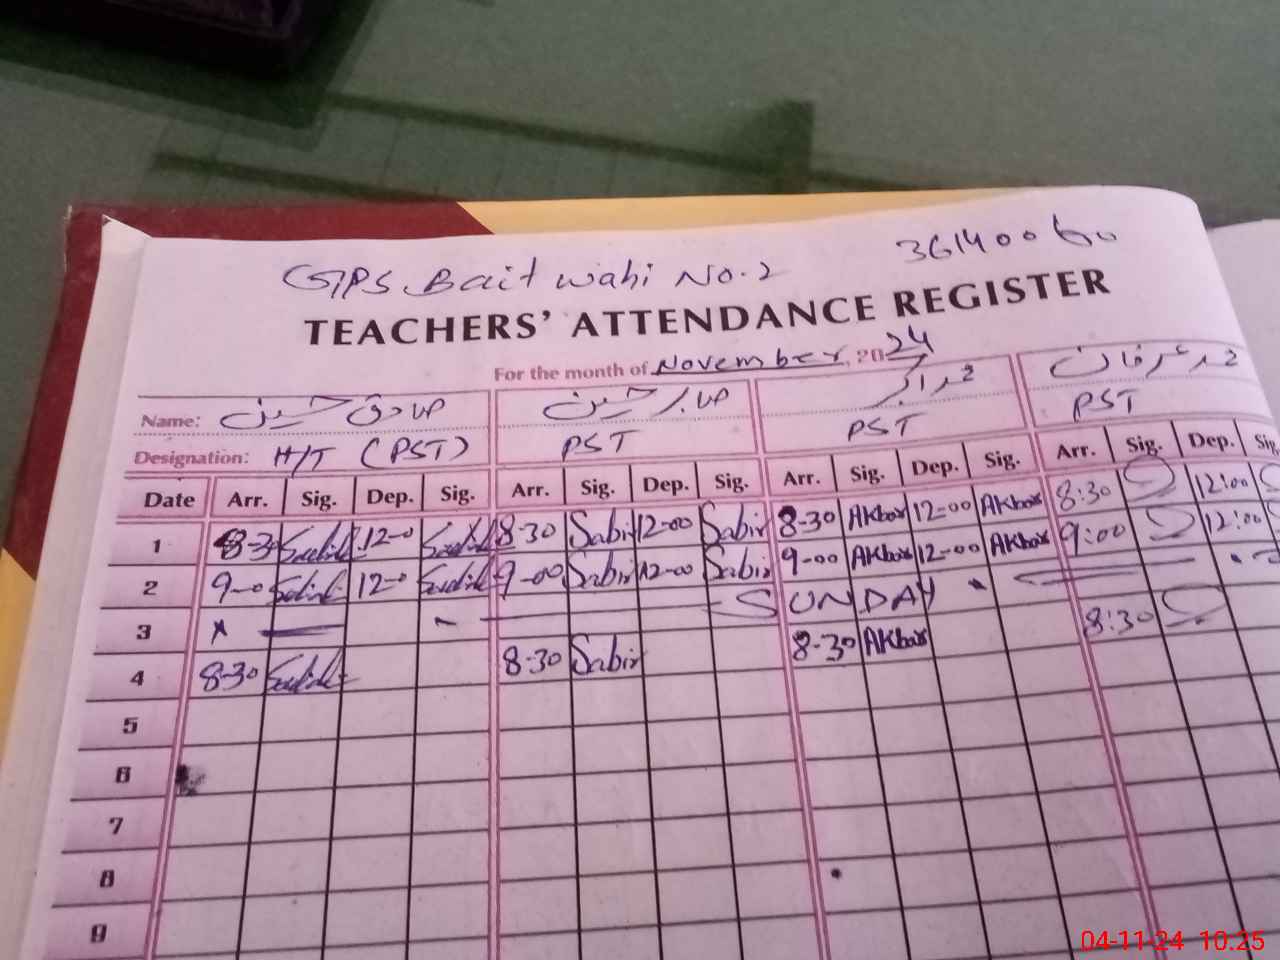 GPS Bait Wahi No.2 36140060
TEACHERS' ATTENDANCE REGISTER
For the month of November, 2024
Name: صادق حسین صابر حسین محمد اکبر محمد عرفان
Designation: H/T (PST) PST PST PST
Date Arr. Sig. Dep. Sig. Arr. Sig. Dep. Sig. Arr. Sig. Dep. Sig. Arr. Sig. Dep.
1 8-30 12-0 8-30 Sabir 12-00 Sabir 8-30 Akbar 12-00 Akbar 8:30 12:00
2 9-0 12-0 9-00 Sabir 12-00 Sabir 9-00 Akbar 12-00 Akbar 9:00 12:00
3 SUNDAY
4 8-30 8-30 Sabir 8-30 Akbar 8:30
5
6
7
8
9
04-11-24 10.25